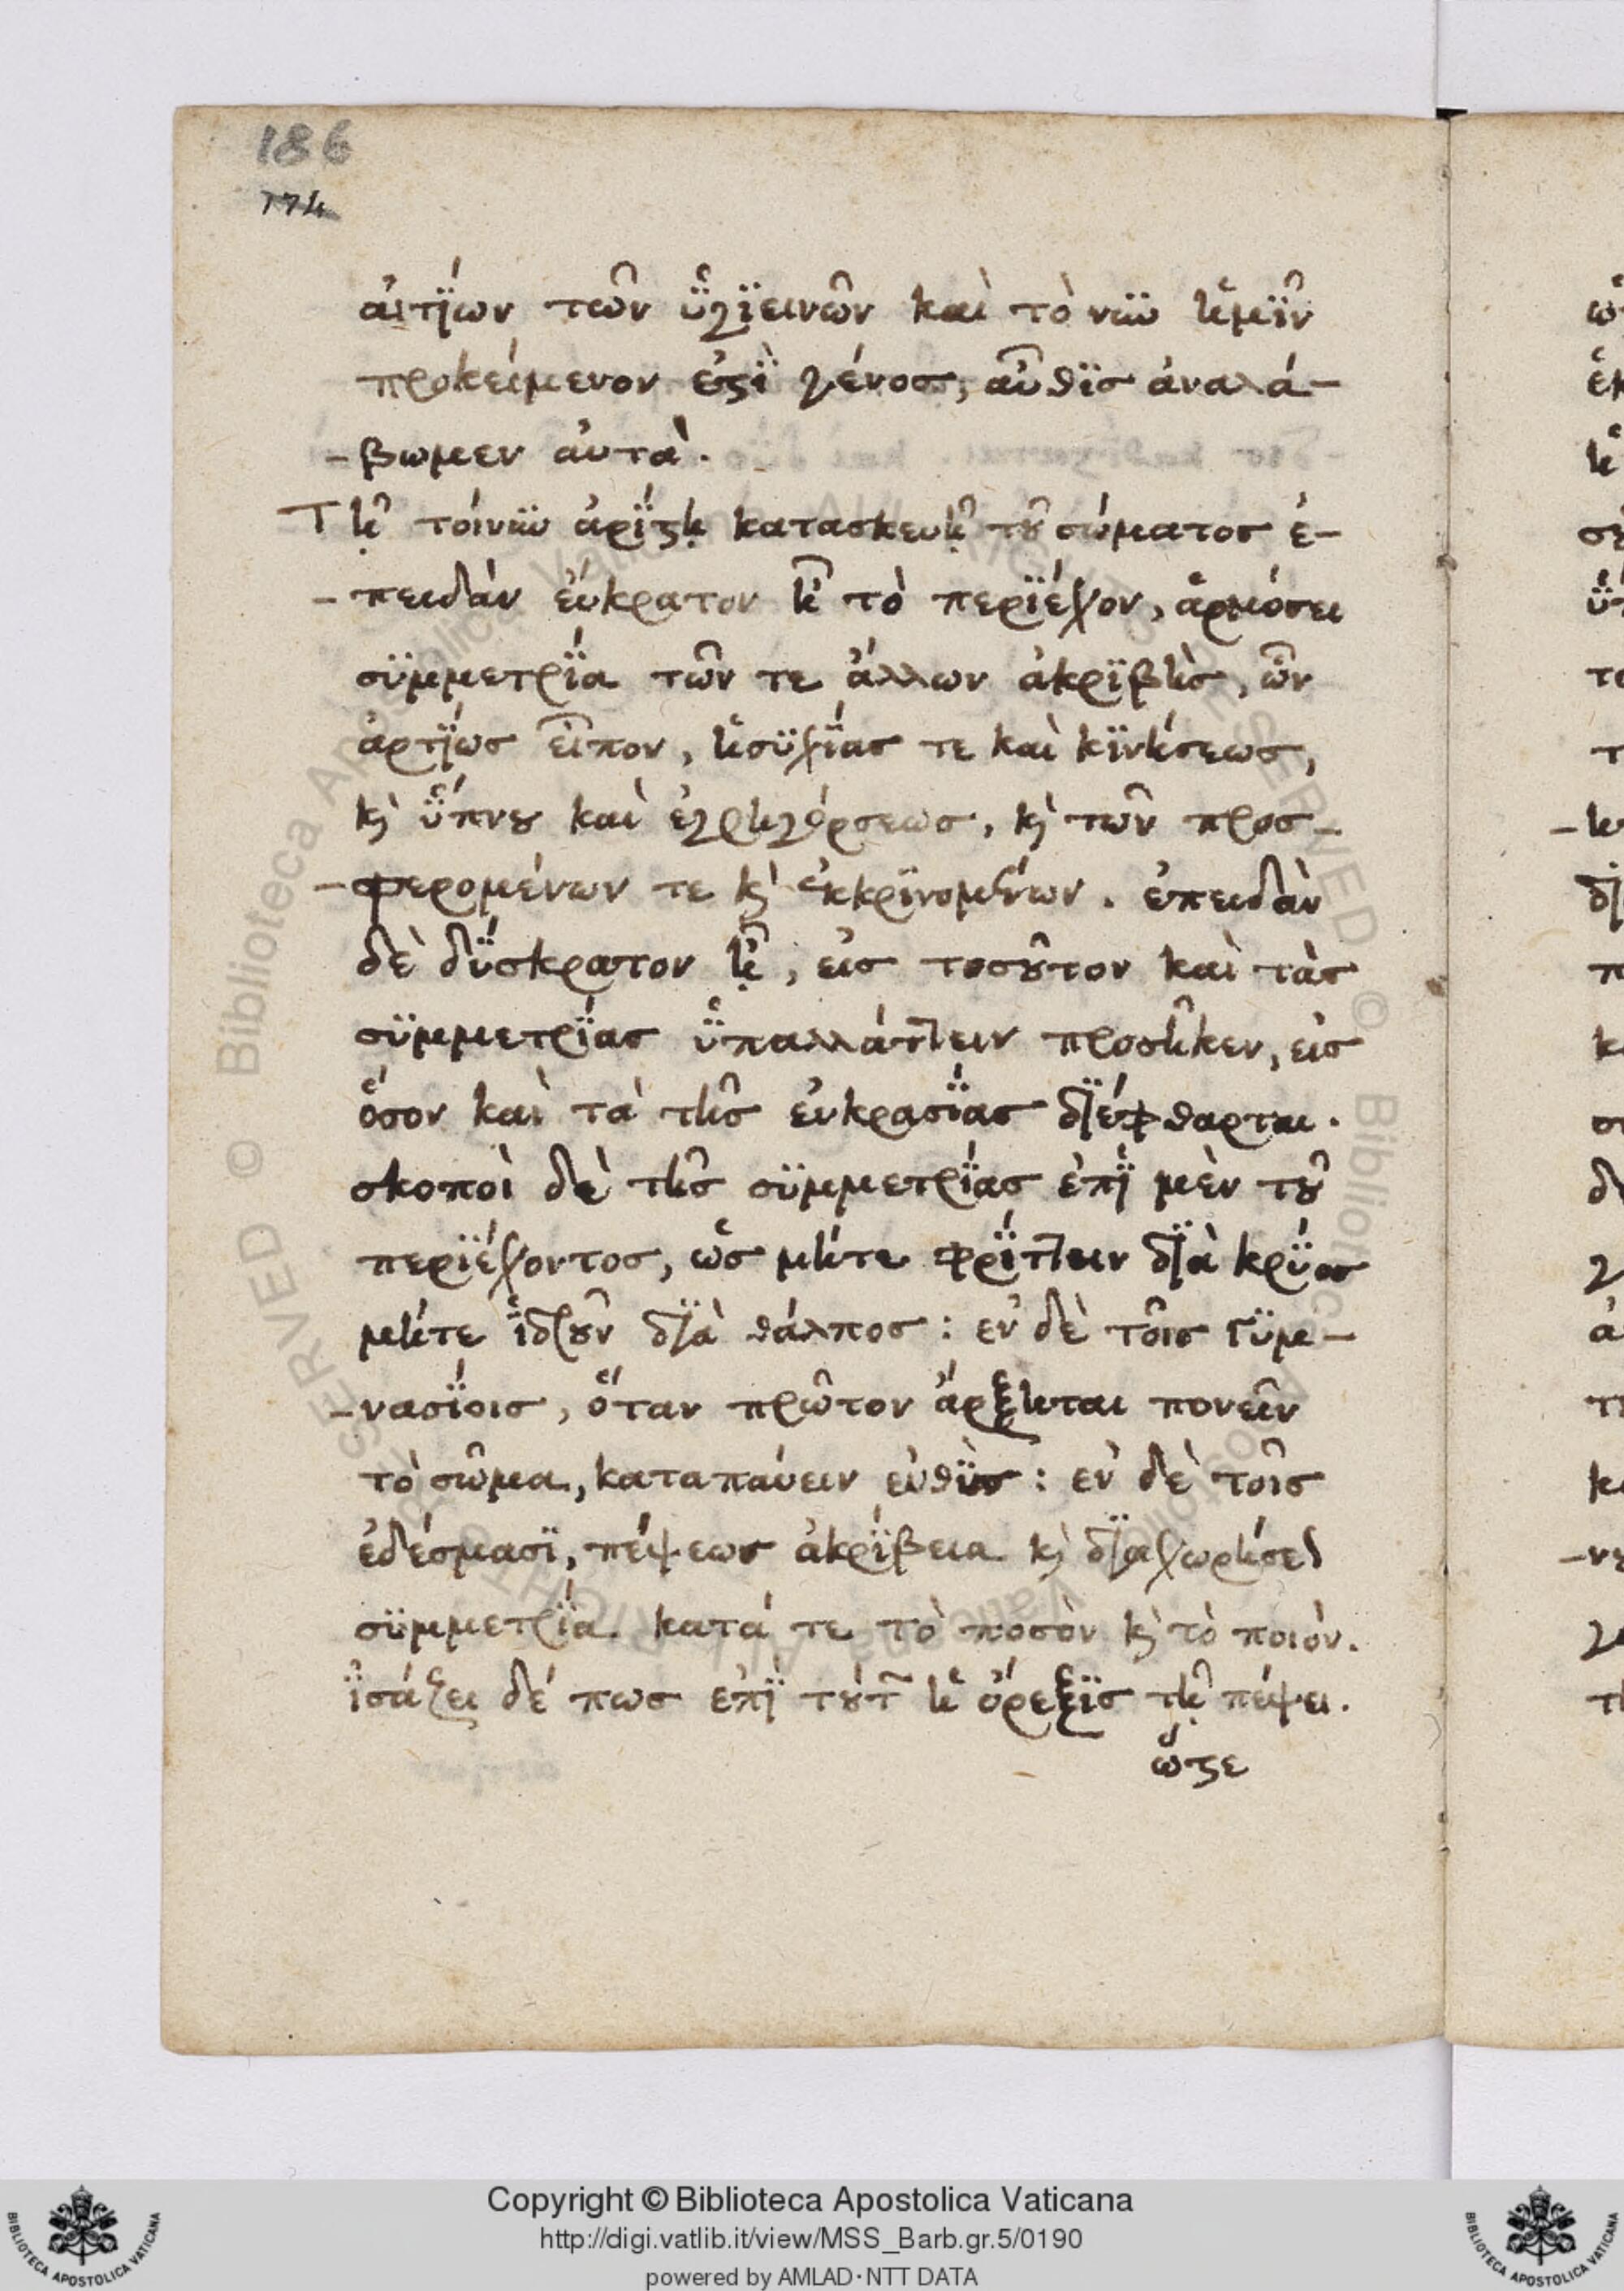 186
174
αἰτΐων τῶν ὑγϊεινῶν καὶ τὸ νῦν ἡμῖν
προκείμενον ἐστὶ γένος, αὖθϊς ἀναλά-
-βωμεν αὐτὰ.
Τῇ τοίνυν ἀρίστῃ κατασκευῇ τοῦ σώματος ἐ-
-πειδὰν εὔκρατον ᾖ τὸ περϊέχον, ἁρμόσει
συμμετρΐα τῶν τε ἄλλων ἀκρϊβὴς, ὧν
ἀρτΐως εἶπον, ἡσυχΐας τε καὶ κϊνήσεως,
κὶ ὕπνου καὶ ἐγρηγόρσεως, κὶ τῶν προσ-
-φερομένων τε κὶ ἐκκρϊνομένων. ἐπειδὰν
δὲ δύσκρατον ᾖ, εἰς τοσοῦτον καὶ τὰς
συμμετρΐας ὑπαλλάττειν προσῆκεν, εἰς
ὅσον καὶ τὰ τῆς εὐκρασΐας δϊέφθαρται.
σκοποὶ δὲ τῆς συμμετρΐας ἐπῒ μὲν τοῦ
περϊέχοντος, ὡς μήτε φρΐττειν δϊὰ κρύος
μήτε ἱδροῦν δϊὰ θάλπος: ἐν δὲ τοῖς γυμ-
-νασΐοις, ὅταν πρῶτον ἄρξηται πονεῖν
τὸ σῶμα, καταπαύειν εὐθὺς: ἐν δὲ τοῖς
ἐδέσμασϊ, πέψεως ἀκρΐβεια κὶ δϊαχωρήσε
συμμετρΐα κατά τε τὸ ποσὸν κὶ τὸ ποιὸν.
ἰσάζει δέ πως ἐπῒ τούτ ἡ ὄρεξϊς τῇ πέψει.
ὥστε
Copyright © Biblioteca Apostolica Vaticana
http://digi.vatlib.it/view/MSS_Barb.gr.5/0190
powered by AMLAD·NTT DATA